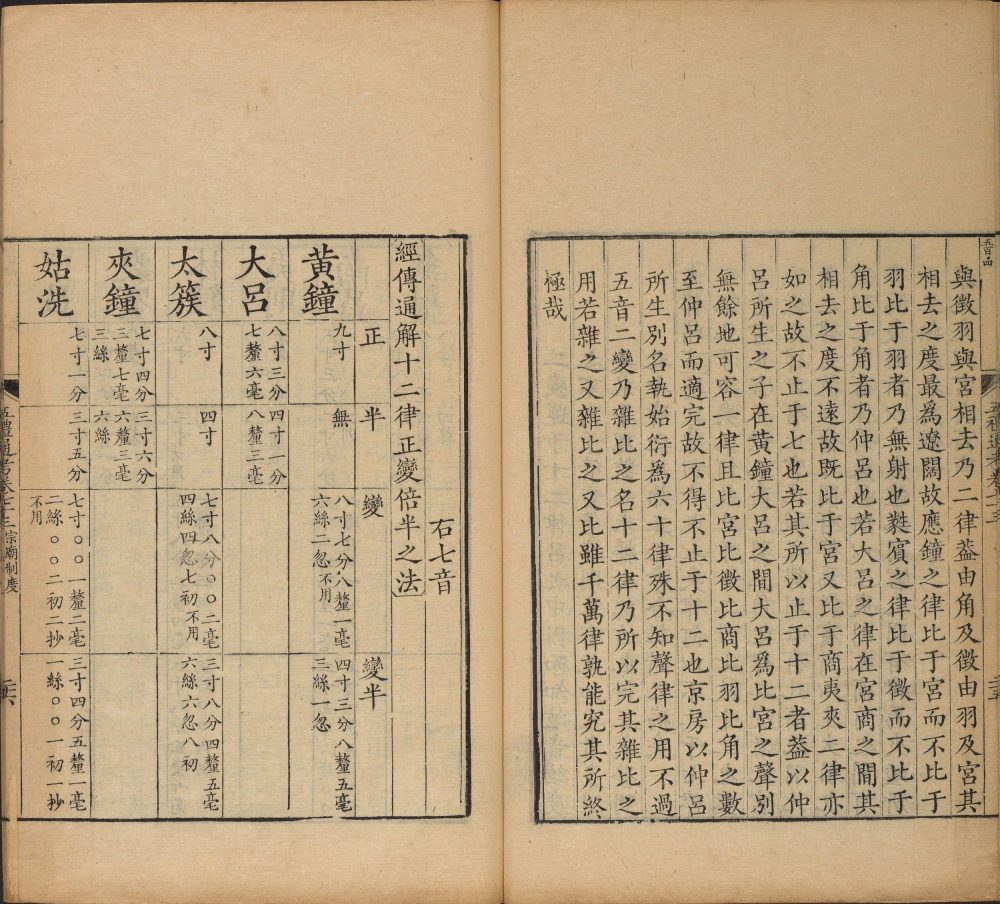 五百卌
五禮通考卷七十三
與徵羽與宮相去乃二律葢由角及徵由羽及宮其
相去之度最為遼闊故應鐘之律比于宮而不比于
羽比于羽者乃無射也蕤賓之律比于徵而不比于
角比于角者乃仲呂也若大呂之律在宮商之間其
相去之度不遠故既比于宮又比于商夷夾二律亦
如之故不止于七也若其所以止于十二者葢以仲
呂所生之子在黃鐘大呂之間大呂爲比宮之聲別
無餘地可容一律且比宮比徵比商比羽比角之數
至仲呂而適完故不得不止于十二也京房以仲呂
所生別名執始衍為六十律殊不知聲律之用不過
五音二變乃雜比之名十二律乃所以完其雜比之
用若雜之又雜比之又比雖千萬律孰能究其所終
極哉
右七音
經傳通解十二律正變倍半之法
正
半
變
變半
黃鐘
九寸
無
八寸七分八釐一毫
六絲二忽不用
四寸三分八釐五毫
三絲一忽
大呂
八寸三分
七釐六毫
四寸一分
八釐三毫
太簇
八寸
四寸
七寸八分〇〇二毫
四絲四忽七初不用
三寸八分四釐五毫
六絲六忽八初
夾鐘
七寸四分
三釐七毫
三絲
三寸六分
六釐三毫
六絲
姑洗
七寸一分
三寸五分
七寸〇〇一釐二毫
二絲〇〇二初二抄
不用
三寸四分五釐一毫
一絲〇〇一初一抄
五禮通考卷七十三宗廟制度
二六